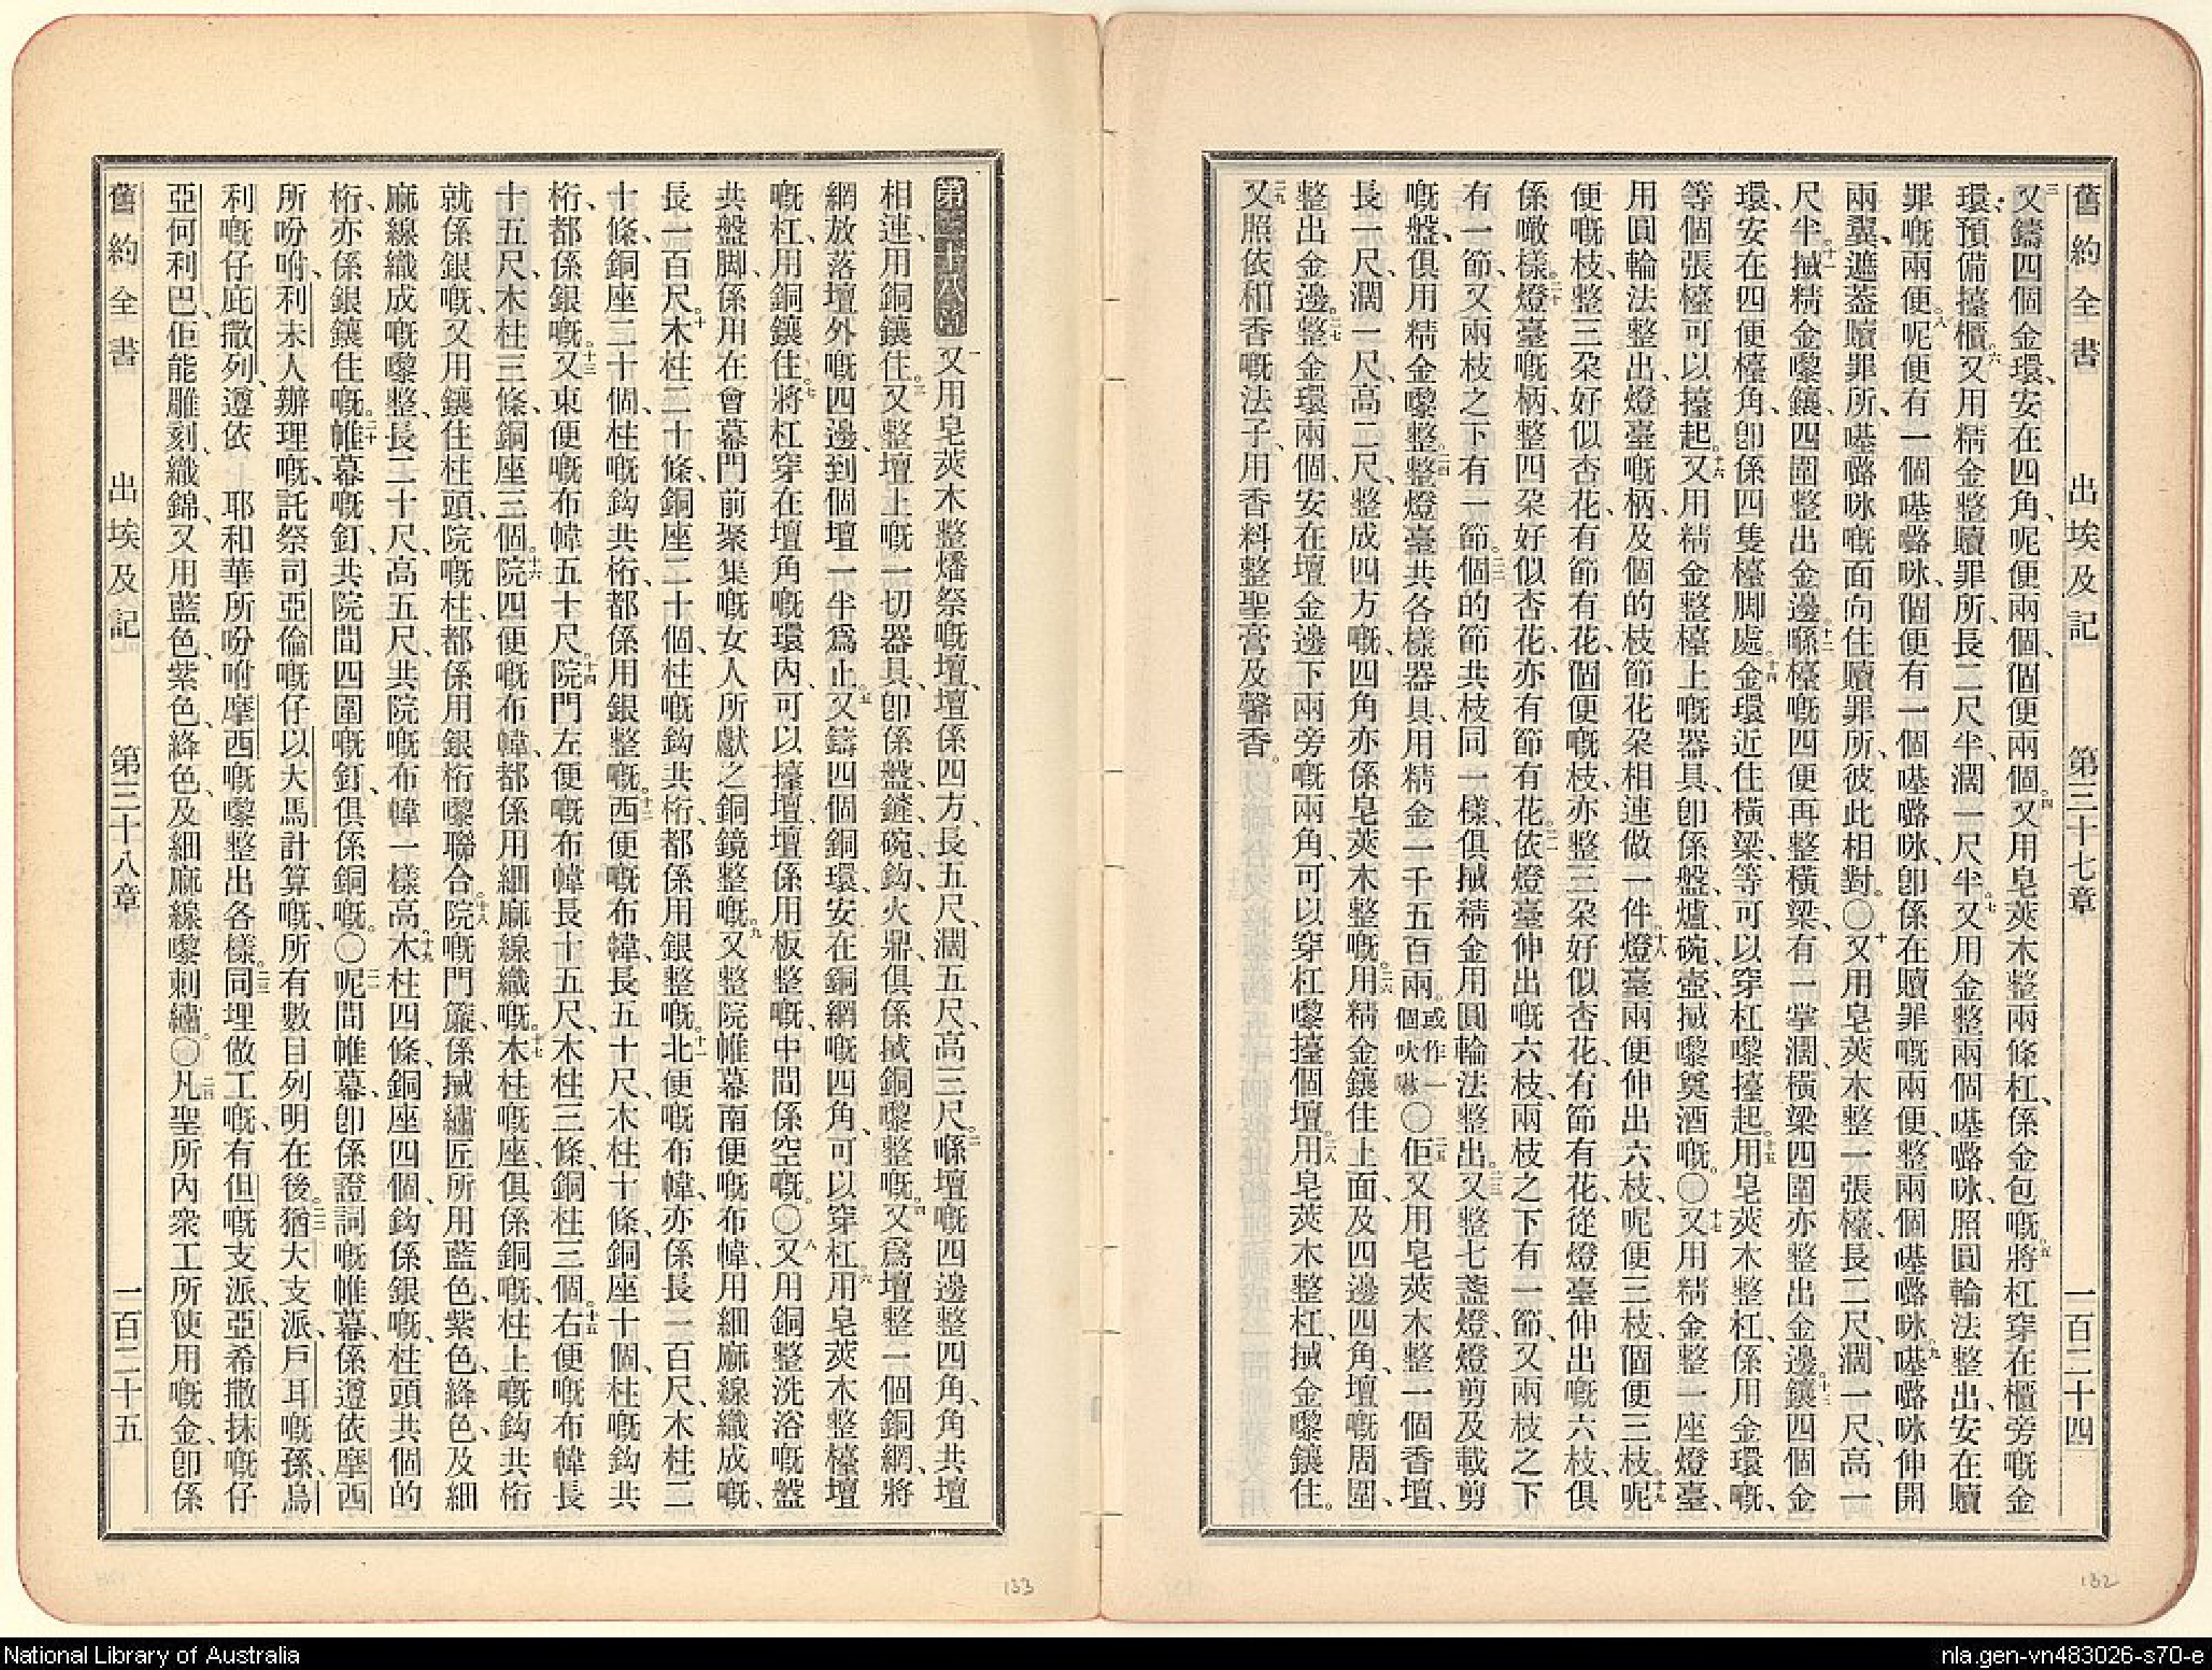 舊約全書 出埃及記 第三十七章 一百二十四
三又鑄四個金環、安在四角、呢便兩個、個便兩個。四又用皂莢木整兩條杠、係金包嘅。五將杠穿在櫃旁嘅金
環、預備擡櫃。六又用精金整贖罪所、長二尺半、濶一尺半。七又用金整兩個𠼻𡀔㕭、照圓輪法整出、安在贖
罪嘅兩便。八呢便有一個𠼻𡀔㕭、個便有一個𠼻𡀔㕭、卽係在贖罪嘅兩便、整兩個𠼻𡀔㕭。九𠼻𡀔㕭伸開
兩翼、遮蓋贖罪所、𠼻𡀔㕭嘅面向住贖罪所、彼此相對。〇十又用皂莢木整一張檯、長二尺、濶一尺、高一
尺半。十一搣精金嚟鑲、四圍整出金邊。十二喺檯嘅四便再整橫梁、有一掌濶、橫梁四圍亦整出金邊。十三鑲四個金
環、安在四便檯角、卽係四隻檯脚處。十四金環近住橫梁、等可以穿杠嚟擡起。十五用皂莢木整杠、係用金環嘅、
等個張檯可以擡起。十六又用精金整檯上嘅器具、卽係盤、爐、碗、壺、搣嚟奠酒嘅。〇十七又用精金整一座燈臺、
用圓輪法整出、燈臺嘅柄、及個的枝節花朶相連做一件。十八燈臺兩便伸出六枝、呢便三枝、個便三枝。十九呢
便嘅枝、整三朶好似杏花、有節有花、個便嘅枝、亦整三朶好似杏花、有節有花、從燈臺伸出嘅六枝、俱
係噉樣。二十燈臺嘅柄、整四朶好似杏花、亦有節有花。二一依燈臺伸出嘅六枝、兩枝之下有一節、又兩枝之下
有一節、又兩枝之下有一節。二二個的節共枝同一樣、俱搣精金用圓輪法整出。二三又整七盞燈、燈剪及載剪
嘅盤、俱用精金嚟整。二四整燈臺共各樣器具、用精金一千五百兩。或作一個吙嚹〇二五佢又用皂莢木整一個香壇、
長一尺、濶一尺、高二尺、整成四方嘅、四角亦係皂莢木整嘅。二六用精金鑲住上面、及四邊四角、壇嘅周圍、
整出金邊。二七整金環兩個、安在壇金邊下兩旁嘅兩角、可以穿杠嚟擡個壇。二八用皂莢木整杠、搣金嚟鑲住。
二九又照依和香嘅法子、用香料整聖膏及馨香。
第三十八章 一又用皂莢木整燔祭嘅壇、壇係四方、長五尺、濶五尺、高三尺。二喺壇嘅四邊整四角、角共壇
相連、用銅鑲住。三又整壇上嘅一切器具、卽係盤、鏟、碗、鈎、火鼎、俱係搣銅嚟整嘅。四又爲壇整一個銅網、將
網放落壇外嘅四邊、到個壇一半爲止。五又鑄四個銅環、安在銅網嘅四角、可以穿杠。六用皂莢木整擡壇
嘅杠、用銅鑲住。七將杠穿在壇角嘅環內、可以擡壇、壇係用板整嘅、中間係空嘅。〇八又用銅整洗浴嘅盤
共盤脚、係用在會幕門前聚集嘅女人所獻之銅鏡整嘅。九又整院帷幕南便嘅布幃、用細蔴線織成嘅、
長一百尺。十木柱二十條、銅座二十個、柱嘅鈎共桁、都係用銀整嘅。十一北便嘅布幃、亦係長一百尺、木柱二
十條、銅座二十個、柱嘅鈎共桁、都係用銀整嘅。十二西便嘅布幃、長五十尺、木柱十條、銅座十個、柱嘅鈎共
桁、都係銀嘅。十三又東便嘅布幃五十尺。十四院門左便嘅布幃長十五尺、木柱三條、銅柱三個。十五右便嘅布幃長
十五尺、木柱三條、銅座三個。十六院四便嘅布幃、都係用細蔴線織嘅。十七木柱嘅座、俱係銅嘅、柱上嘅鈎共桁
就係銀嘅、又用鑲住柱頭、院嘅柱、都係用銀桁嚟聯合。十八院嘅門簾、係搣繡匠所用藍色、紫色、絳色、及細
蔴線織成嘅嚟整、長二十尺、高五尺、共院嘅布幃一樣高。十九木柱四條、銅座四個、鈎係銀嘅、柱頭共個的
桁、亦係銀鑲住嘅。二十帷幕嘅釘、共院間四圍嘅釘、俱係銅嘅。〇二一呢間帷幕、卽係證詞嘅帷幕、係遵依摩西
所吩咐、利未人辦理嘅、託祭司亞倫嘅仔以大馬計算嘅、所有數目列明在後。二二猶大支派、戶耳嘅孫、烏
利嘅仔庇撒列、遵依 耶和華所吩咐摩西嘅嚟整出各樣。二三同埋做工嘅、有但嘅支派、亞希撒抹嘅仔
亞何利巴、佢能雕刻、織錦、又用藍色、紫色、絳色、及細蔴線嚟刺繡。〇二四凡聖所內衆工所使用嘅金、卽係
舊約全書 出埃及記 第三十八章 一百二十五
133
132
National Library of Australia
nla.gen-vn483026-s70-e